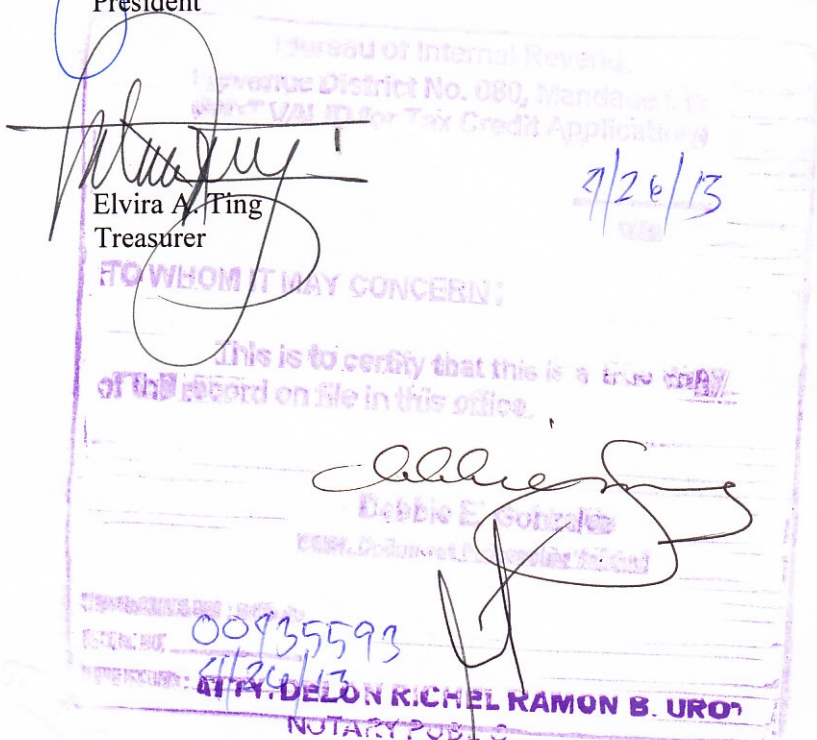 President
Bureau of Internal Revenue
Revenue District No. 080, Mandaue
NOT VALID for Tax Credit Application
4/26/13
Elvira A. Ting
Treasurer
TO WHOM IT MAY CONCERN:
This is to certify that this is a true copy
of the record on file in this office.
Debbie E. Gonzales
00935593
4/26/13
ATTY. DELON RICHEL RAMON B. URO
NOTARY PUBLIC